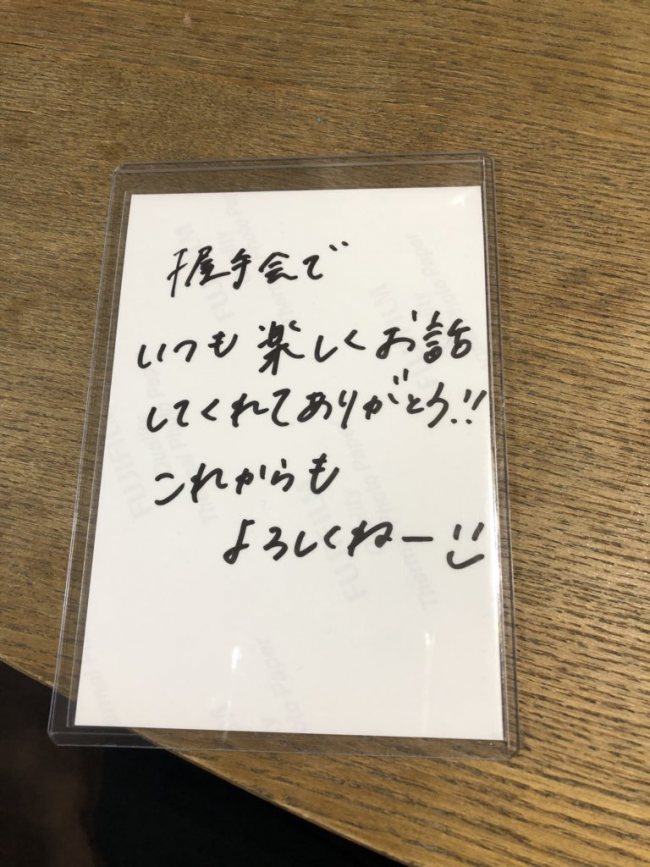 握手会で
いつも楽しくお話
してくれてありがとう!!
これからも
よろしくねー
FUJIFILM
Thermal Photo Paper